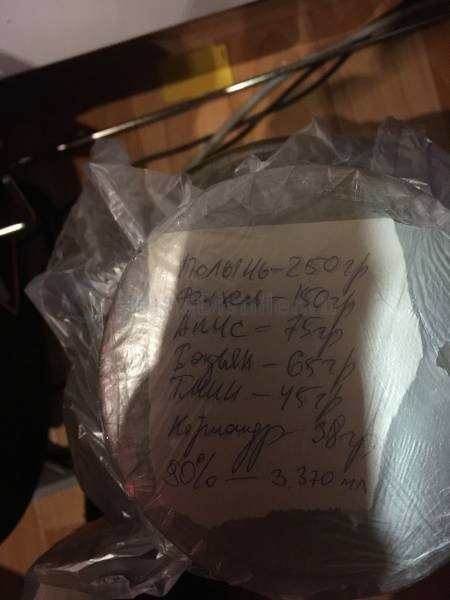 Полынь - 250гр
Фенхель - 150гр
Анис = 75гр
Бадьян - 65гр
Тмин - 45гр
Кориандр - 38гр
90% - 3.370 мл
HomeDistiller.ru